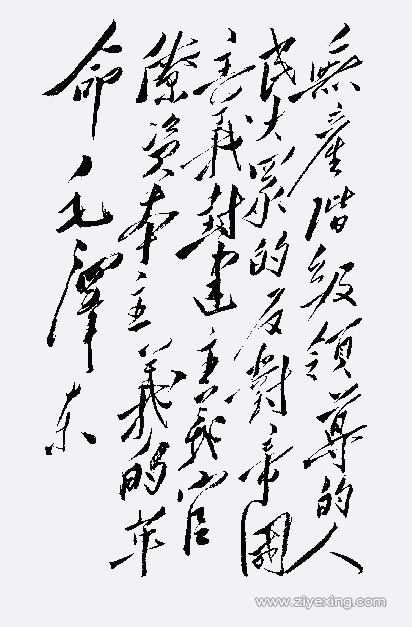 無產階級領導的人
民大眾的反對帝國
主義封建主義官
僚資本主義的革
命 毛澤东
www.ziyexing.com